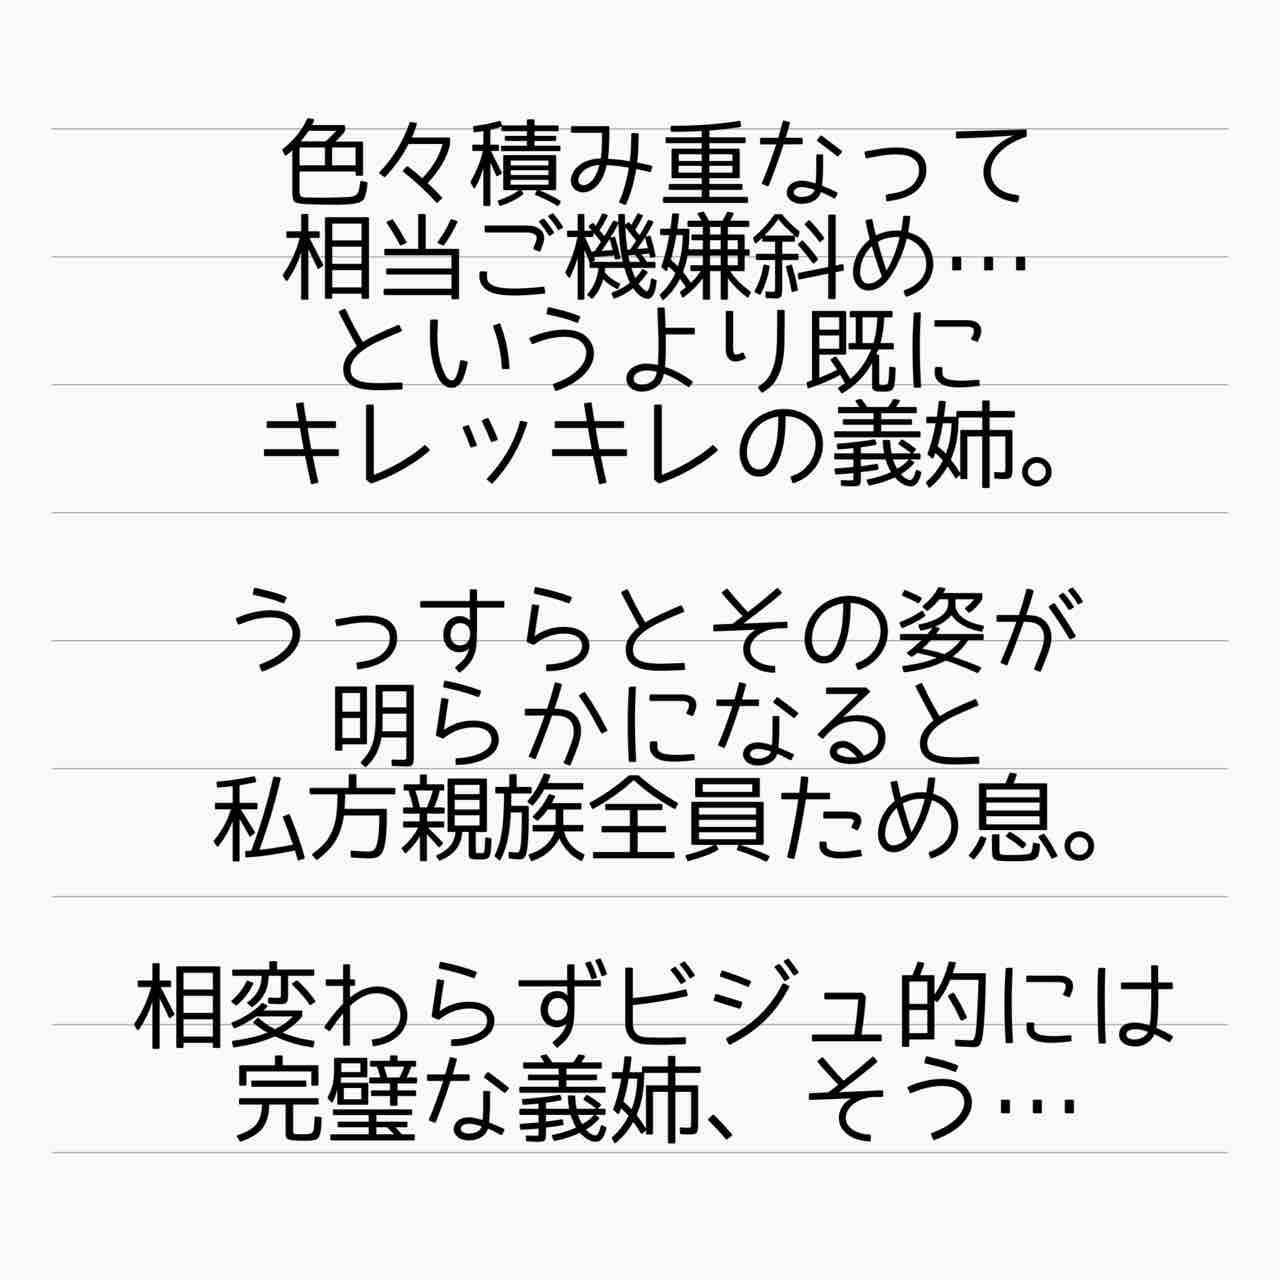 色々積み重なって
相当ご機嫌斜め…
というより既に
キレッキレの義姉。
うっすらとその姿が
明らかになると
私方親族全員ため息。
相変わらずビジュ的には
完璧な義姉、そう…